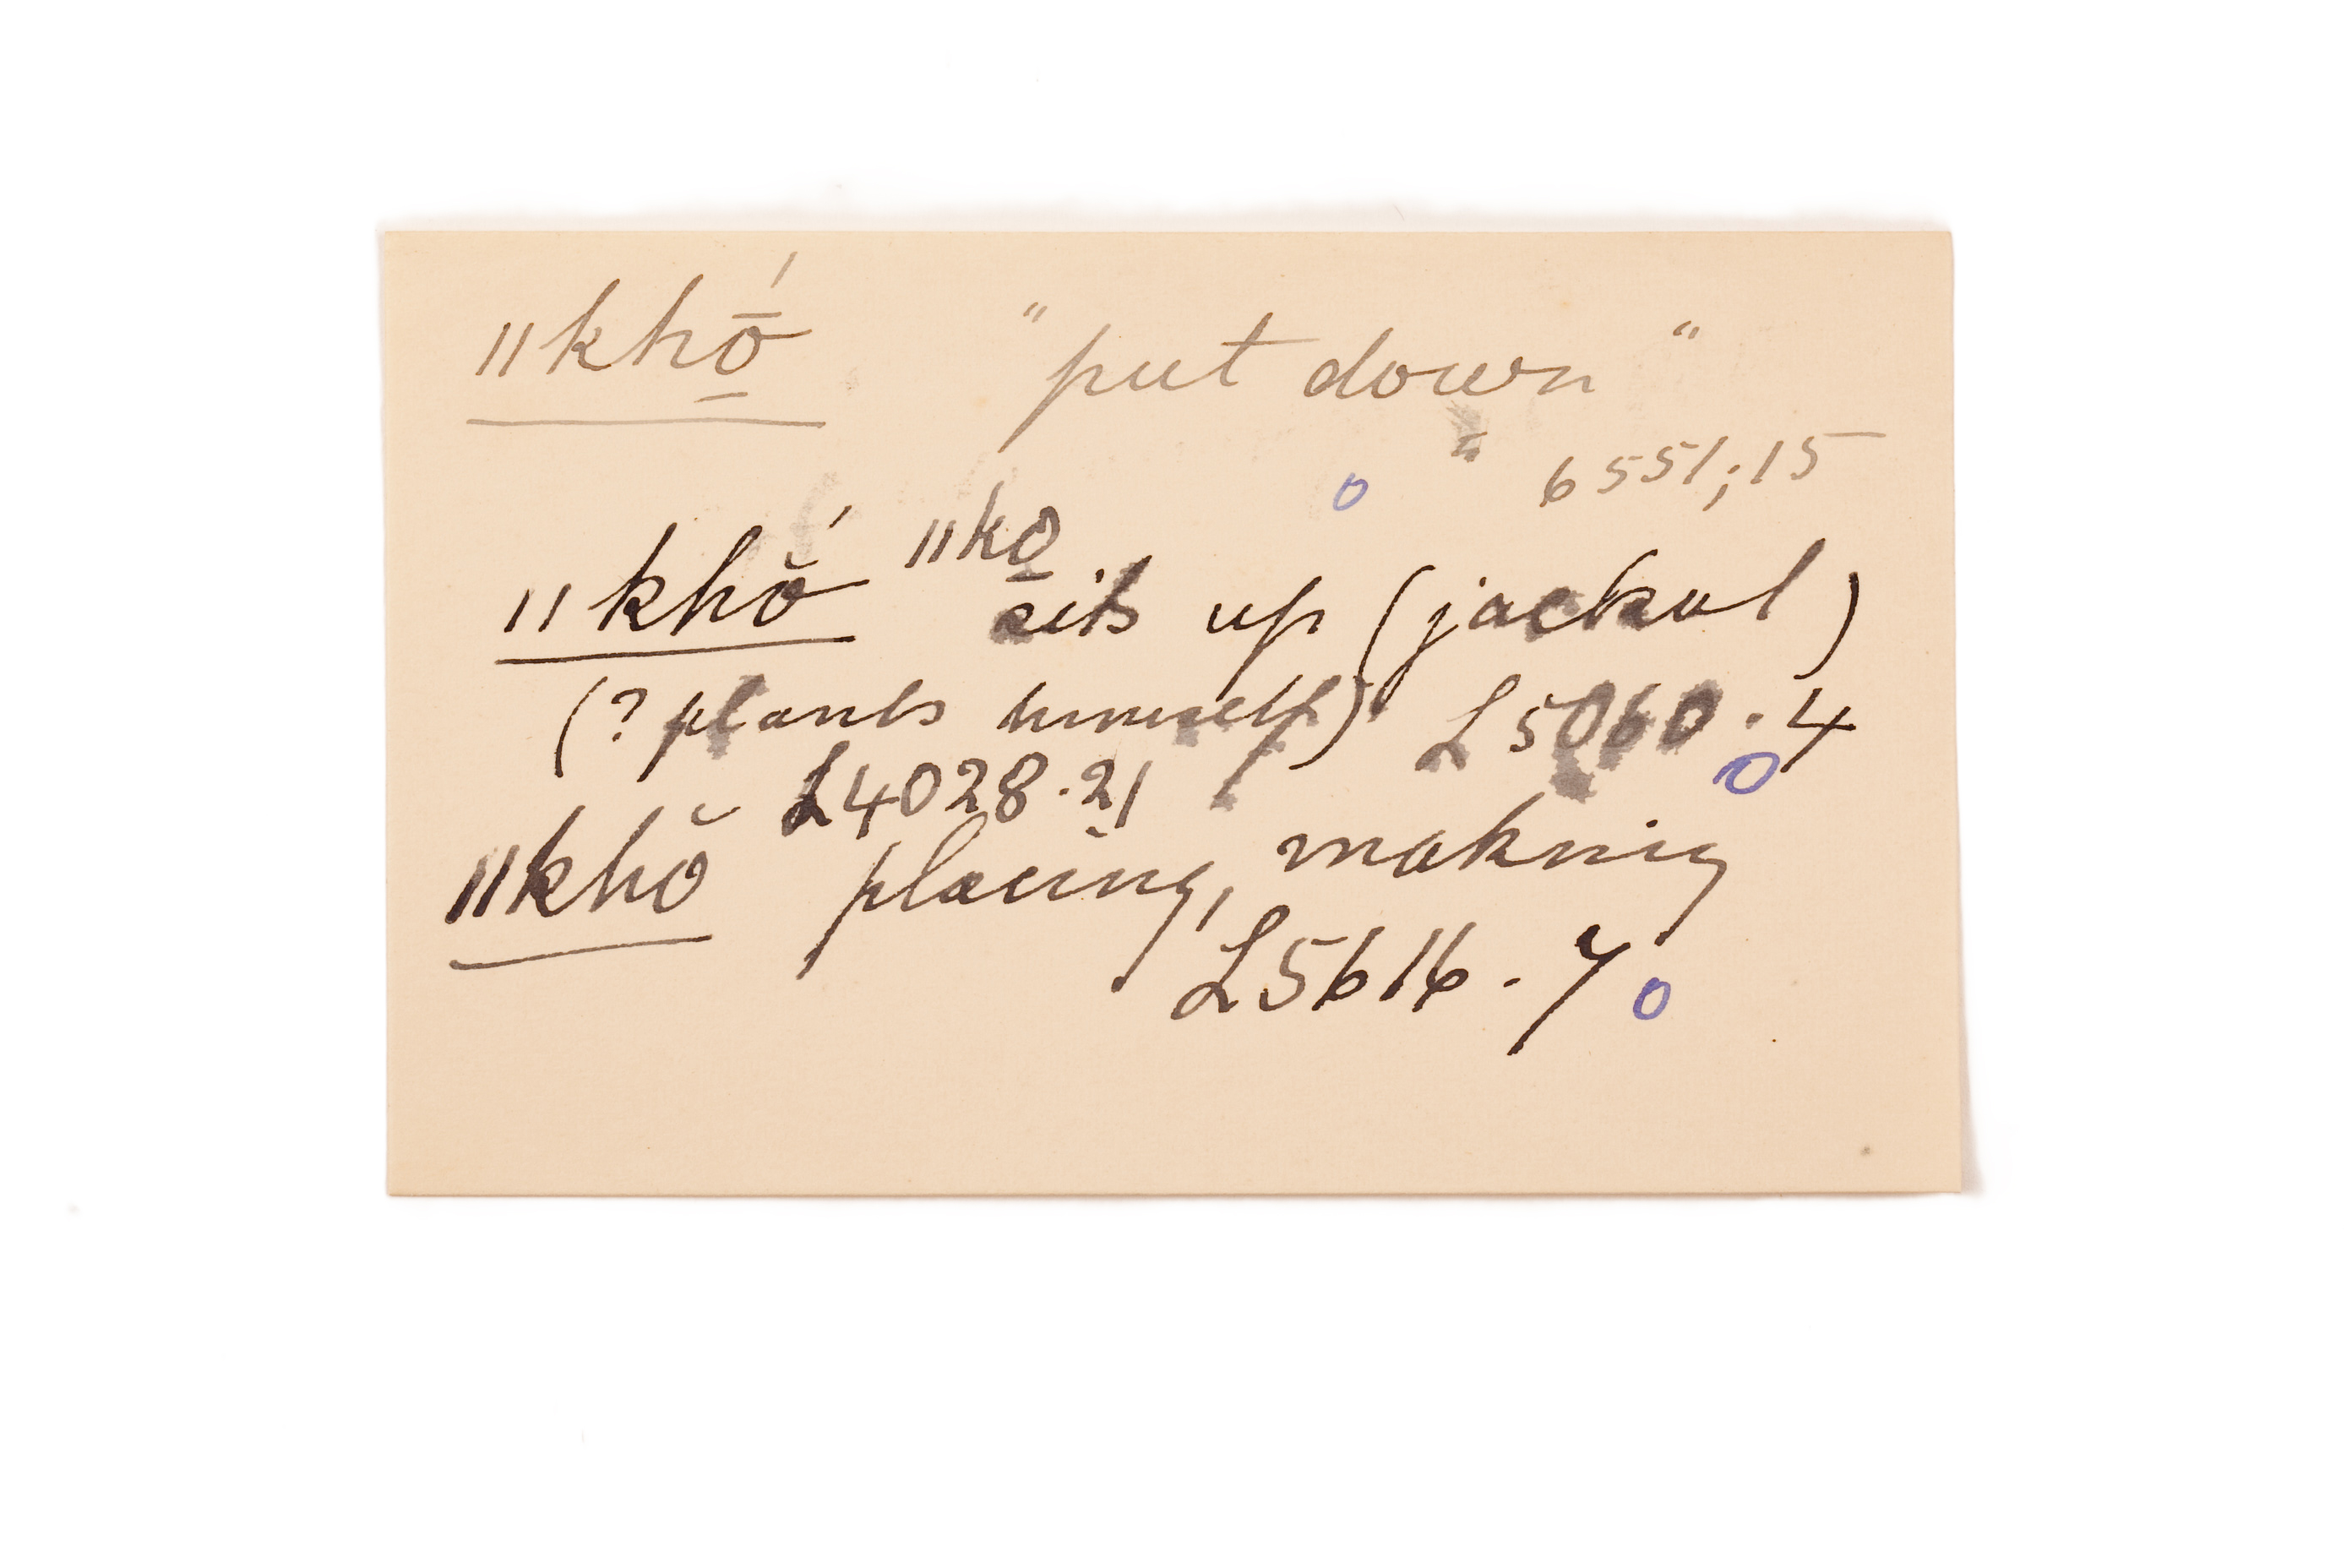 ǁkhṓ̱ "put down"
o " 6551; 15
ǁkhŏ́ ǁko̱ sits up (jackal)
(? plants himself) L5060.4 o
L4028.21
ǁkhŏ placing, making
L5616.7 o